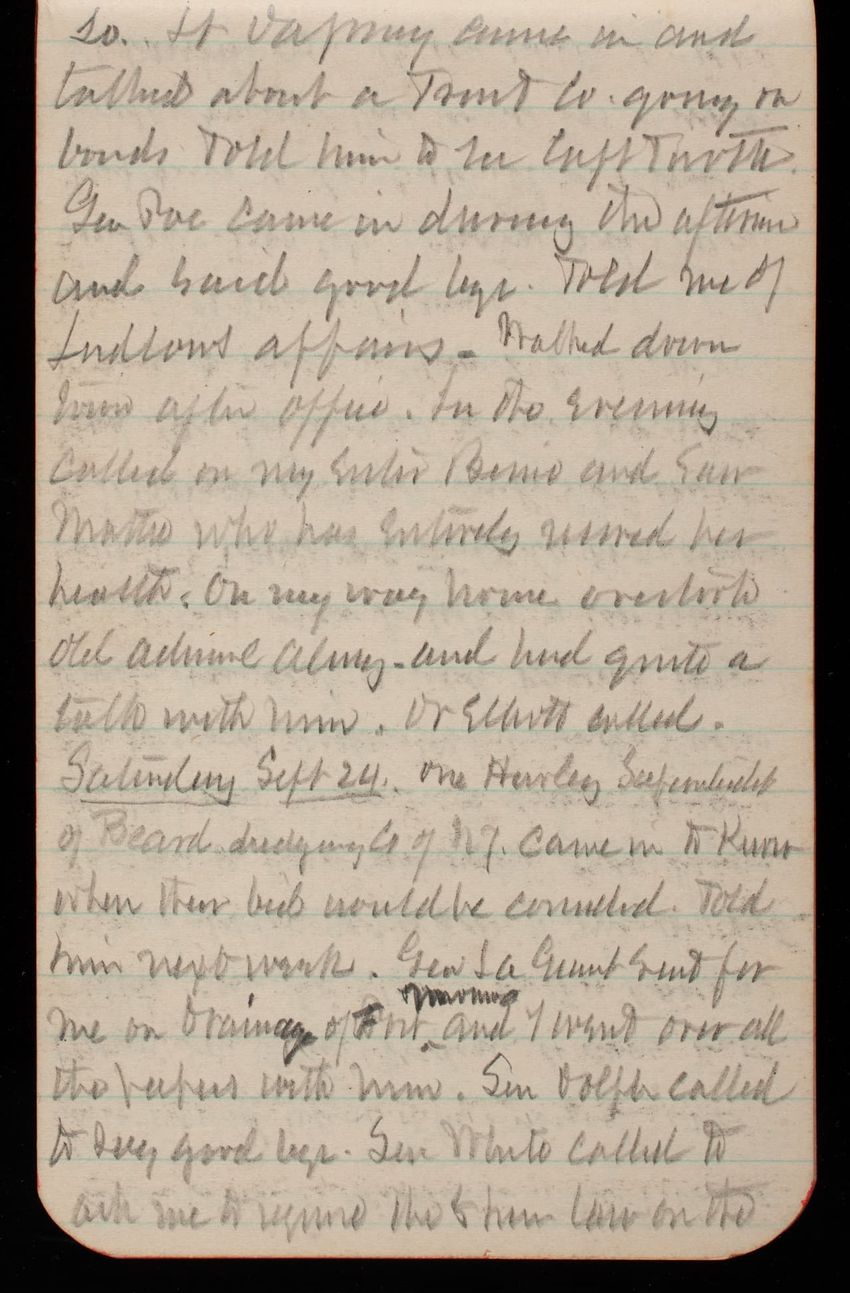 so. Lt Vapney came in and
talked about a Trust Co. going on
bonds Told him to see Capt Tuttle.
Gen Poe came in during the afternoon
and said good bye. Told me of
Ludlows affairs - Walked down
town after office. In the evening
called on my sister and saw
Mattie who has entirely recovered her
health. On my way home overtook
old Admiral Almy - and had quite a
talk with him. Dr Elliott called.
Saturday Sept 24. One Hurley
of Beard dredging Co of N.Y. came in to know
when their bid would be considered. Told
him next week. Gen Grant sent for
me on drainage of Fort and I went over all
the papers with him. Sen Dolph called
to say good bye. Sen White called to
ask me to the 8 hour law on the